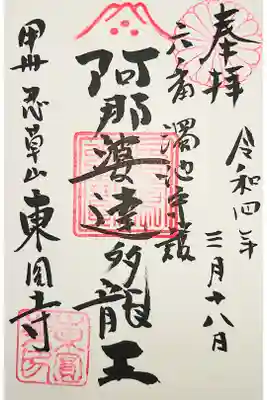 奉拝
令和四年
三月十八日
六番 濁池守護
阿那婆達多龍王
甲州忍草山東圓寺